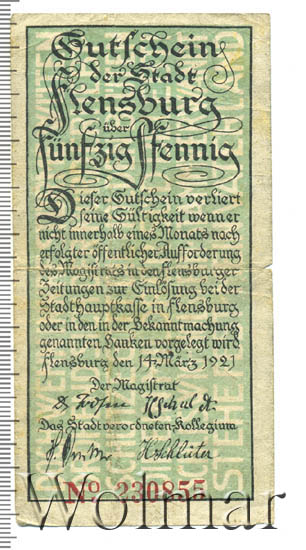 Gutschein
der Stadt
Flensburg
über
fünfzig Pfennig
Dieser Gutschein verliert
seine Gültigkeit wenn er
nicht innerhalb eines Monats nach
erfolgter öffentlicher Aufforderung
des Magistrats in den Flensburger
Zeitungen zur Einlösung bei der
Stadthauptkasse in Flensburg
oder in den in der Bekanntmachung
genannten Banken vorgelegt wird
Flensburg den 14. März 1921
Der Magistrat
Das Stadtverordneten-Kollegium
H Schlüter
No 230855
Wolmar